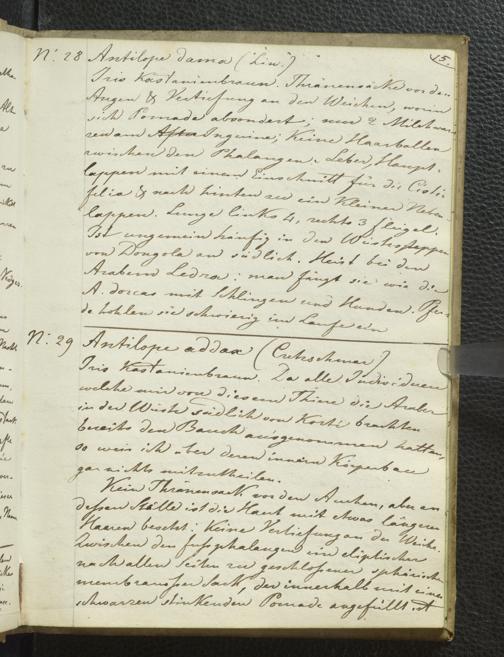 15.
N: 28 Antilope dama (Lin.)
Iris Kastanienbraun. Thränensäcke vor den
Augen & Vertiefung an den Weichen, worin
sich Pomade absondert; nur 2 Milchwar
zen am After Inguina; Keine Haarballen
zwischen den Phalangen. Leber, Haupt-
lappen mit einem Einschnitt für die Cisti
felia & nach hinten zu ein Kleiner Neben
lappen. Lunge links 4, rechts 3 flügel.
Ist ungemein häufig in den Wüstesteppen
von Dongola an südlich. Heist bei den
Arabern Ledra; man fängt sie wie die
A. dorcas mit Schlingen und Hunden. Pfer
de hohlen sie schwierig im Laufe ein
N: 29 Antilope addax (Cretzschmar)
Iris Kastanienbraun. Da alle Individuen
welche mir von diesem Thiere die Araber
in der Wüste südlich von Korti brachten
bereits den Bauch ausgenommen hatten,
so weis ich über deren innern Körperbau
gar nichts mitzutheilen.
Kein Thränensack vor den Augen, aber an
dessen Stelle ist die Haut mit etwas längern
Haaren besetzt. Keine Vertiefung an der Weiche.
Zwischen den fussphalangen ein eliptischer
nach allen Seiten zu geschlossener sphärisch
membranoser Sack, der innerhalb mit einer
schwarzen stinkenden Pomade angefüllt ist